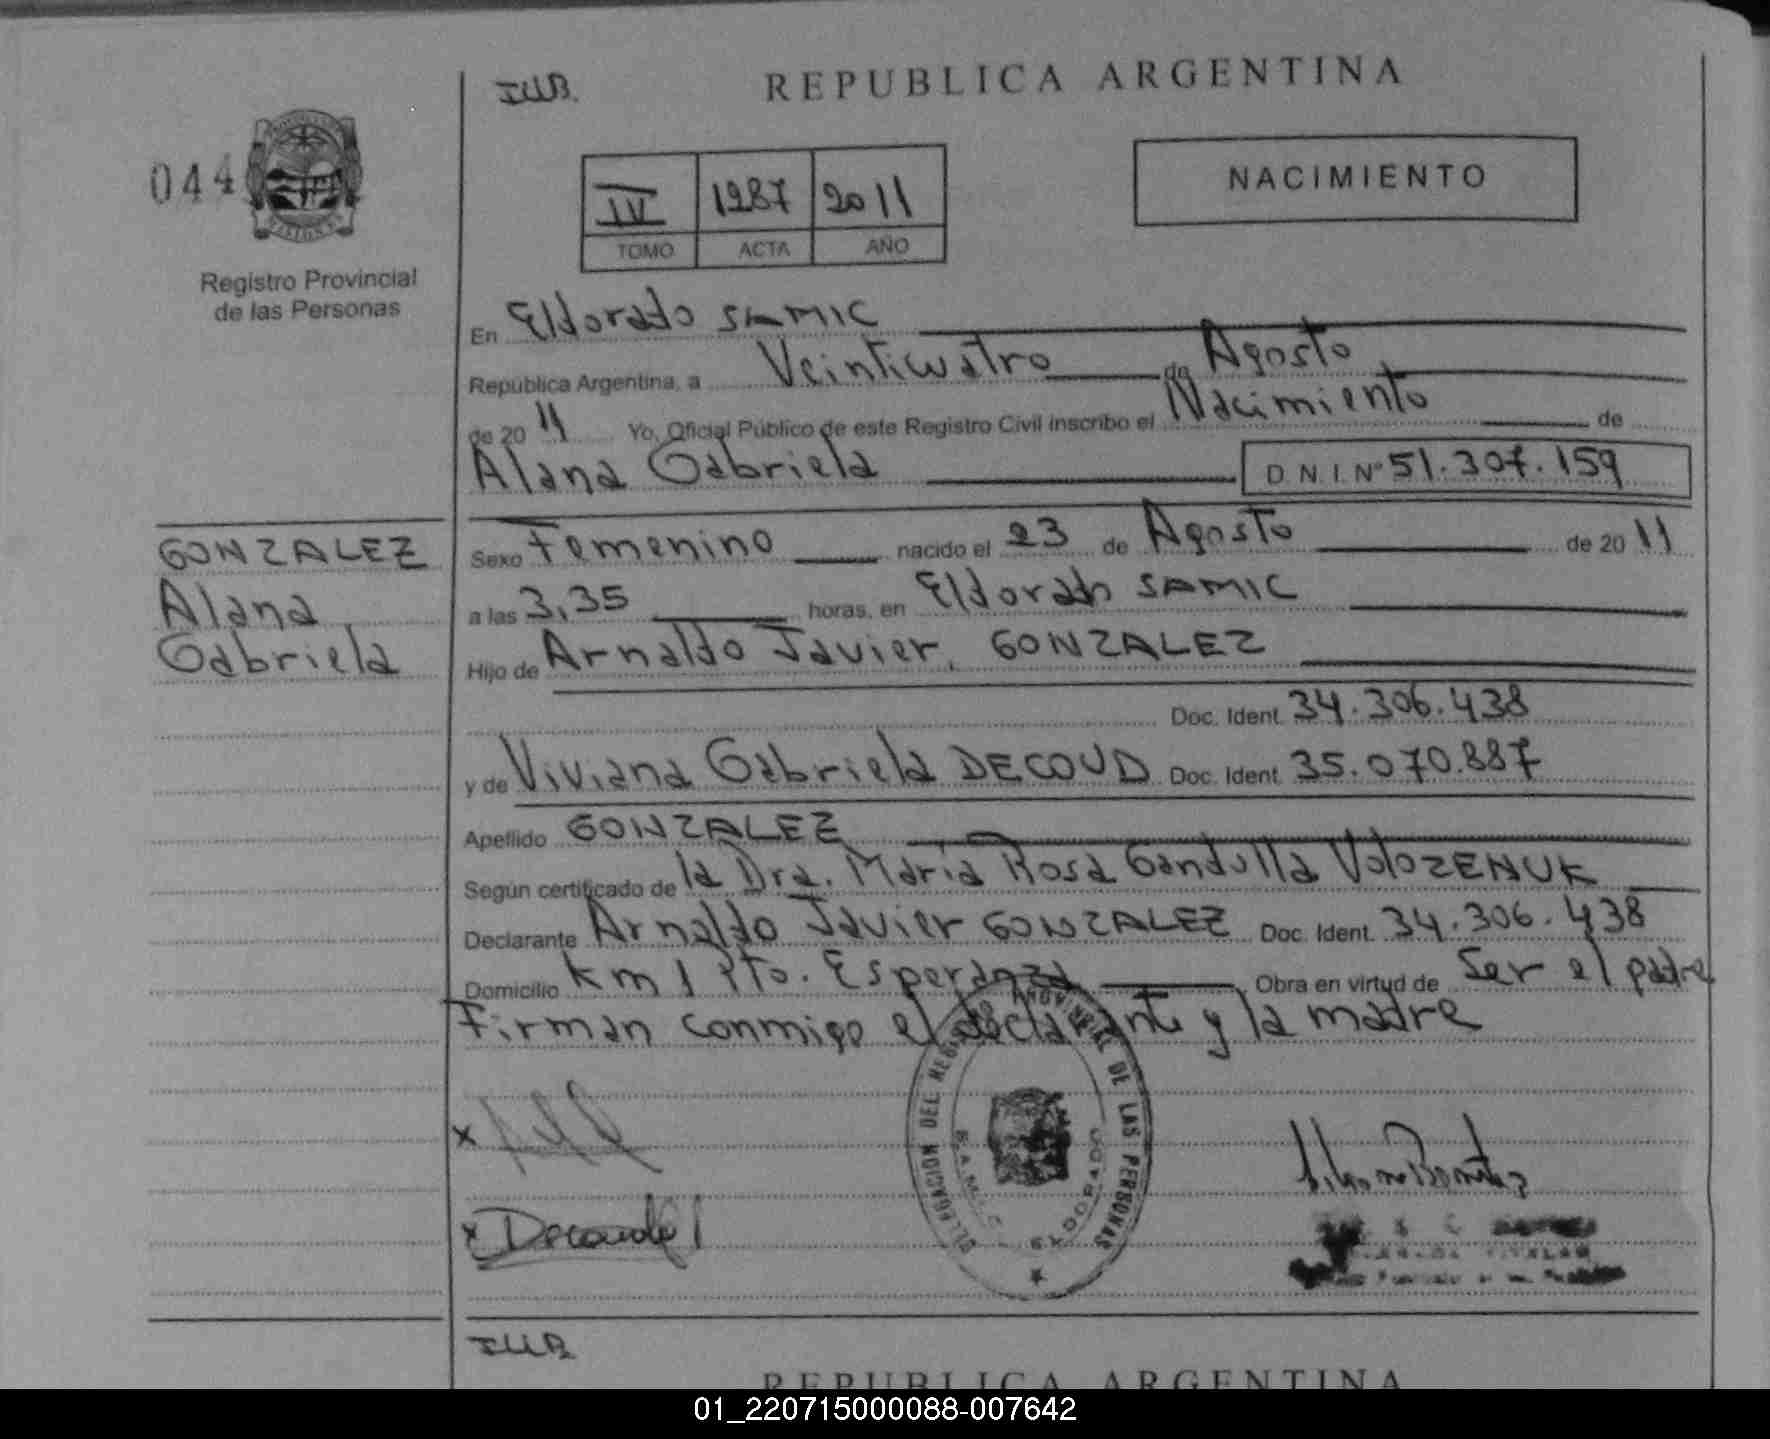 IUB.
REPUBLICA ARGENTINA
044
NACIMIENTO
IV 1287 2011
TOMO ACTA AÑO
Registro Provincial
de las Personas
En Eldorado SAMIC
República Argentina, a Veinticuatro de Agosto
de 2011 Yo, Oficial Público de este Registro Civil inscribo el Nacimiento de
Alana Gabriela D.N.I. Nº 51.307.159
GONZALEZ
Alana
Gabriela
Sexo Femenino nacido el 23 de Agosto de 2011
a las 3,35 horas, en Eldorado SAMIC
Hijo de Arnaldo Javier, GONZALEZ
Doc. Ident. 34.306.438
y de Viviana Gabriela DECOUD Doc. Ident. 35.070.887
Apellido GONZALEZ
Según certificado de la Dra. Maria Rosa Gandulla
Declarante Arnaldo Javier GONZALEZ Doc. Ident. 34.306.438
Domicilio km 1 Pto. Esperanza Obra en virtud de Ser el padre
Firman conmigo el declarante y la madre
DELEGACION DEL REGISTRO PROVINCIAL DE LAS PERSONAS
S.A.M.I.C. ELDORADO
x
x Decoud
IUB
REPUBLICA ARGENTINA
01_220715000088-007642